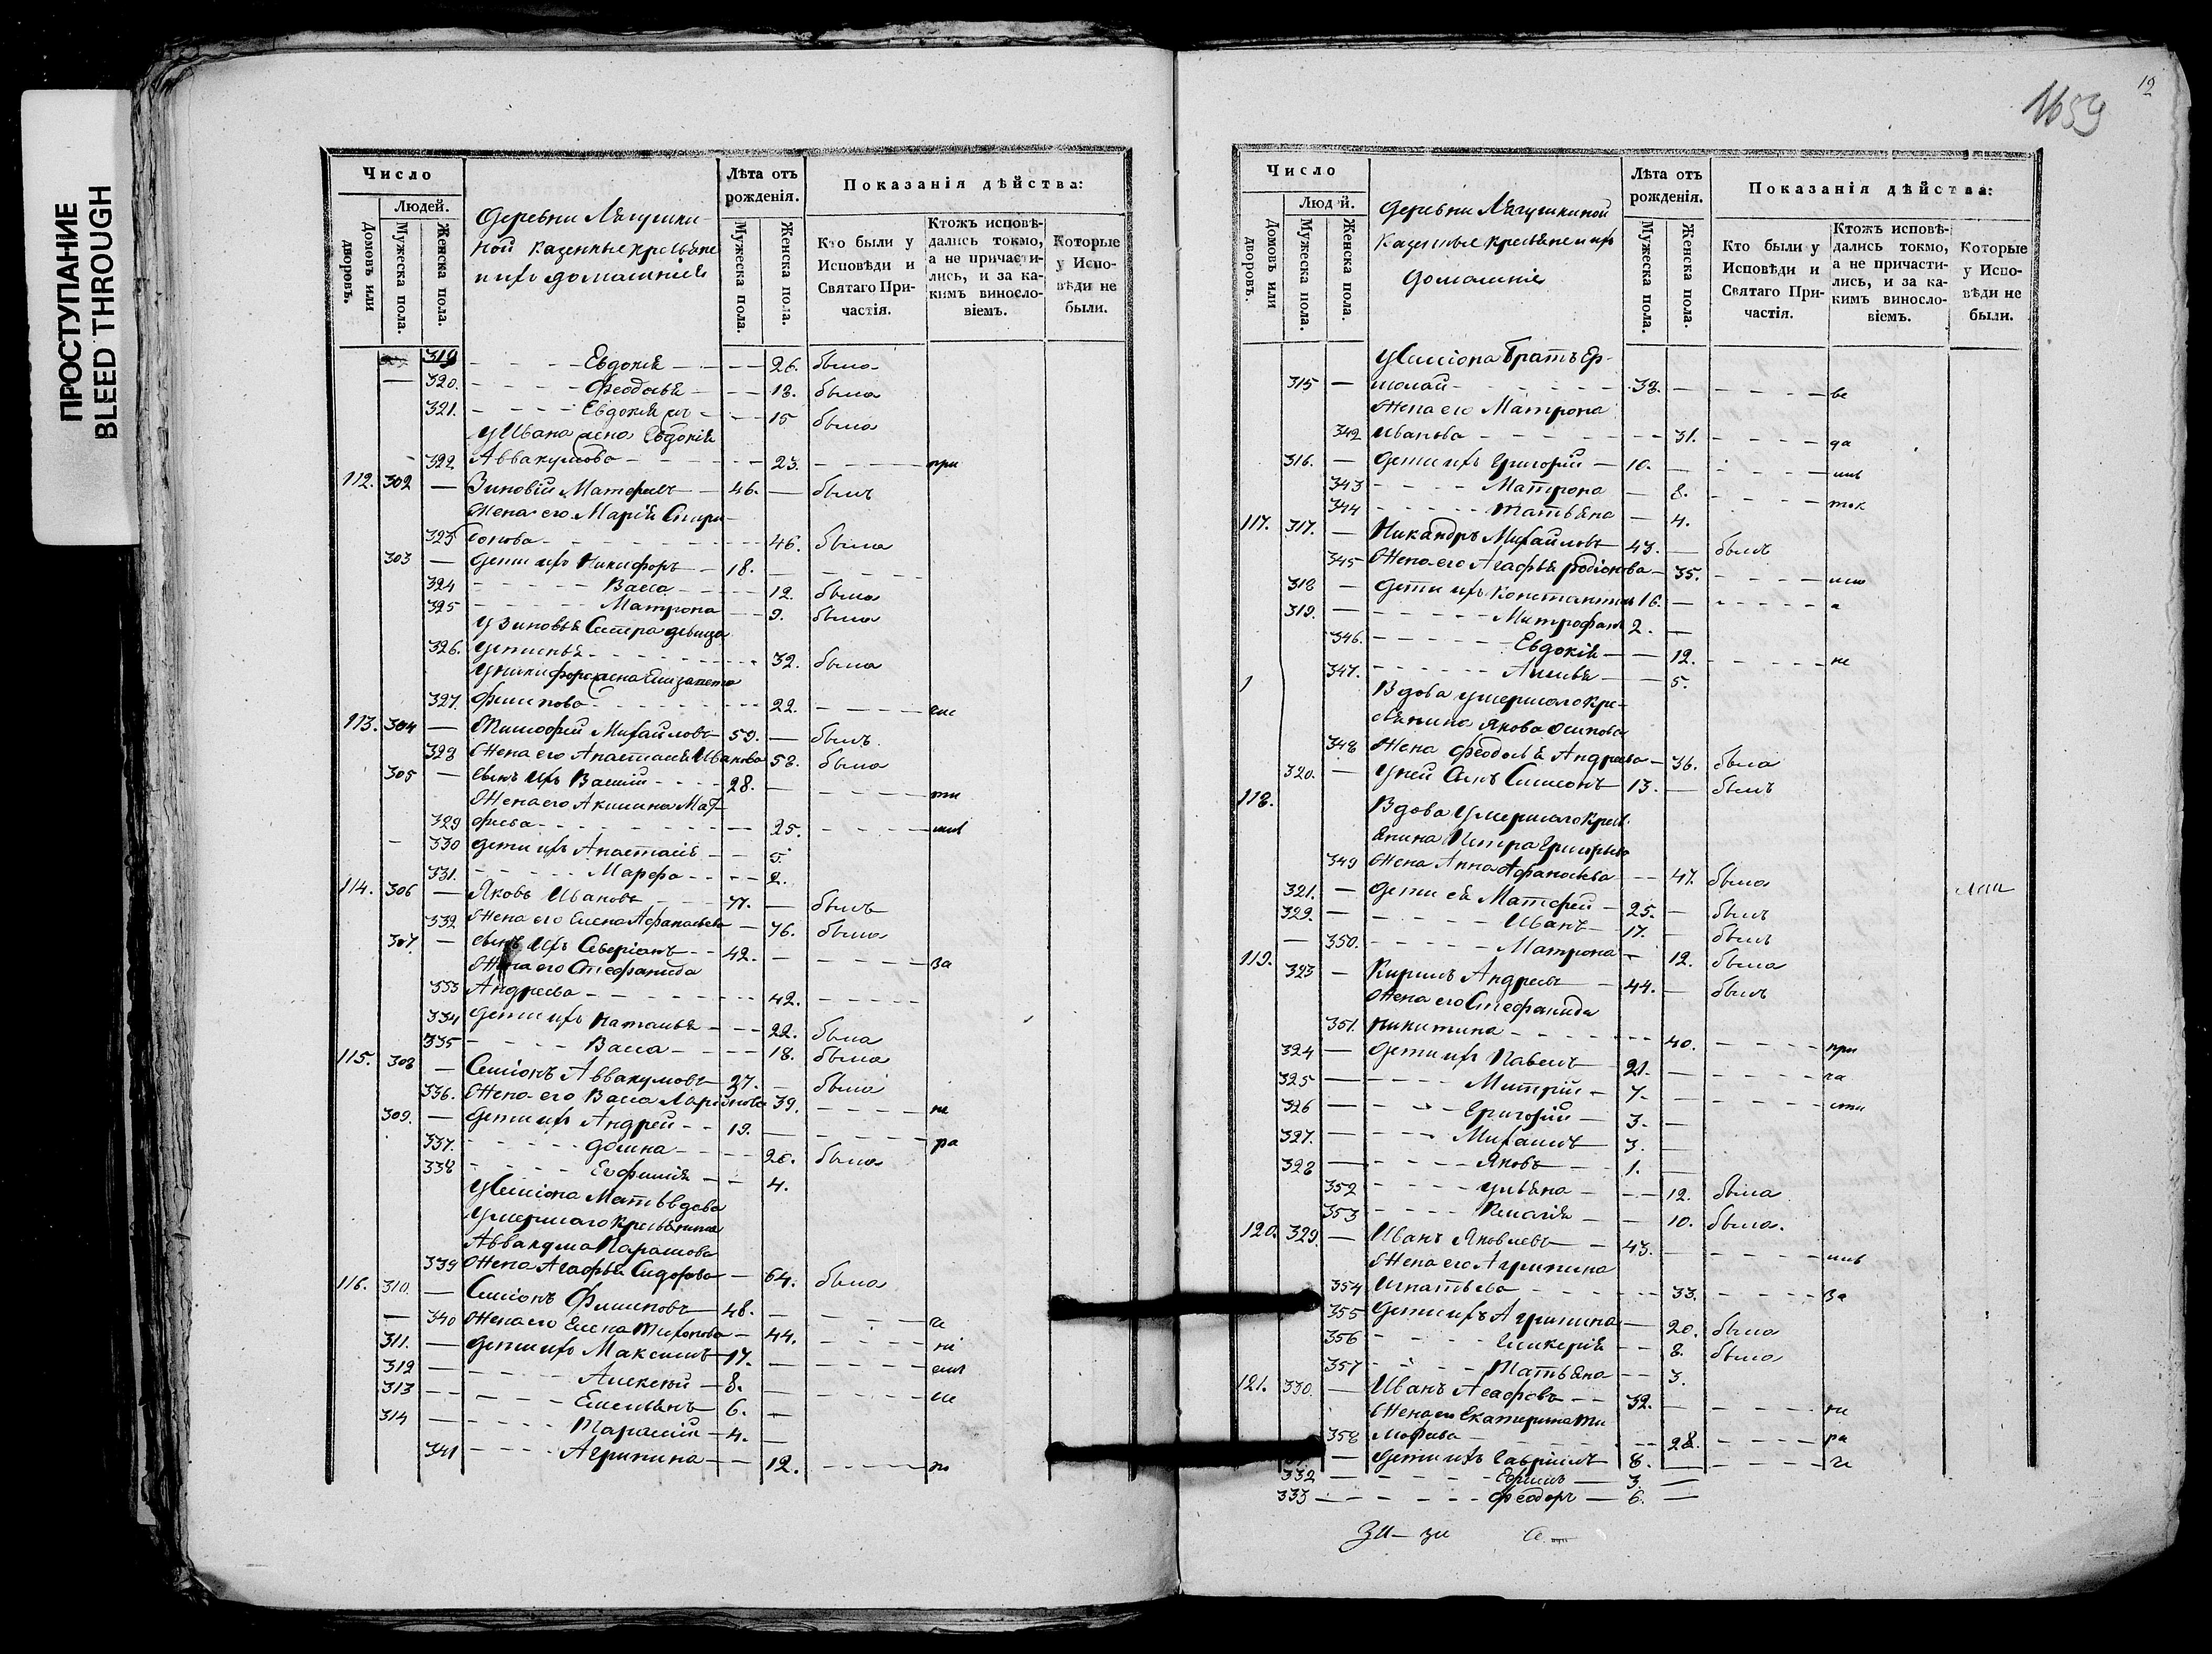 ПРОСТУПАНИЕ
BLEED THROUGH
Число
Людей.
Домовъ или дворовъ.
Мужеска пола.
Женска пола.
Деревни Лягушки-
ной казенные крестьяне
и ихъ домашнiе
Лѣта отъ рожденія.
Мужеска пола.
Женска пола.
Показанія дѣйства:
Кто были у Исповѣди и Святаго Причастія.
Ктожъ исповѣдались токмо, а не причастились, и за какимъ винословіемъ.
Которые у Исповѣди не были.
319 Евдокія 26. была
320. Феодосья 18. была
321. Евдокія 15 была
У Ивана жена Евдокія
322 Аввакумова 23. при
112. 302 Зиновій Матфеевъ 46. былъ
Жена его Марія Спири-
323 донова 46. была
303 Дети ихъ Никифоръ 18.
324 Васса 12. была
325 Матрона 9. была
У Зиновья Сестра девица
326. Устинья 32. была
У Никифора жена Елизавета
327. Филипова 22.
113. 304 Тимофей Михайловъ 59. былъ
328 Жена его Анастасія Иванова 58. была
305 Сынъ ихъ Василій 28.
Жена его Акилина Мат-
329 феева 25.
330 Дети ихъ Анастасія 5.
331. Марфа 2.
114. 306 Яковъ Ивановъ 77. былъ
332 Жена его Елена Афанасьева 76. была
307. Сынъ ихъ Северіанъ 42. за
Жена его Стефанида
333 Андреева 42.
334 Дети ихъ Наталья 22. была
335 Васса 18. была
115. 308 Симіонъ Аввакумовъ 27. была
336. Жена его Васса Ларіонова 39. не
309. Дети ихъ Андрей 19. ра
337. Домна 20. была
338 Евфимія 4.
У Симіона Мать вдова
Умершаго крестьянина
Аввакума Парамова
339 Жена Агафья Сидорова 64. была
116. 310. Симіонъ Филиповъ 48.
340 Жена его Елена Тихонова 44.
311. Дети ихъ Максимъ 17.
312 Алексѣй 8.
313 Емельянъ 6.
314 Тарасій 4.
341 Агрипина 12. по
1659
12
Число
Людей.
Домовъ или дворовъ.
Мужеска пола.
Женска пола.
Деревни Лягушкиной
Казенные крестьяне и ихъ
домашніе
Лѣта отъ рожденія.
Мужеска пола.
Женска пола.
Показанія дѣйства:
Кто были у Исповѣди и Святаго Причастія.
Ктожъ исповѣдались токмо, а не причастились, и за какимъ винословіемъ.
Которые у Исповѣди не были.
У Симіона Братъ Ер-
315 молай 38. не
Жена его Матрона
342 Иванова 31. да
316. Дети ихъ Григорій 10.
343 Матрона 8.
344 Татьяна 4.
117. 317. Никандръ Михайловъ 43. былъ
345 Жена его Агафья Родіонова 35.
318 Дети ихъ Константинъ 16.
319. Митрофанъ 2.
346. Евдокія 12. не
347. 5.
Вдова умершаго кре-
стьянина Якова Осипова
348 Жена Феодосья Андреева 36. была
320. У ней Сынъ Симіонъ 13. былъ
118. Вдова Умершаго крест
янина Петра Григорьева
349 Жена Анна Афанасьева 47. была
321. Дети ея Матфей 25. былъ
322. Иванъ 17. былъ
350. Матрона 12. была
119. 323 Кирилъ Андреевъ 44. былъ
Жена его Стефанида
351. Никитина 40. при
324 Дети ихъ Павелъ 21. ча
325 Митрій 7. сти
326 Григорій 3.
327. Михаилъ 3.
328 Яковъ 1.
352 Ульяна 12. была
353 Пелагія 10. была.
120. 329. Иванъ Яковлевъ 43.
Жена его Агрипина
354 Игнатьева 33. за
355 Дети ихъ Агрипина 20. была
356 Гликерія 8. была
357 Татьяна 3.
121. 330. Иванъ Агафовъ 32. не
Жена его Екатерина Ти
358 мофеева 28. ра
Дети ихъ Гавріилъ 8.
332 Ефимъ 3.
333 Феодоръ 6.